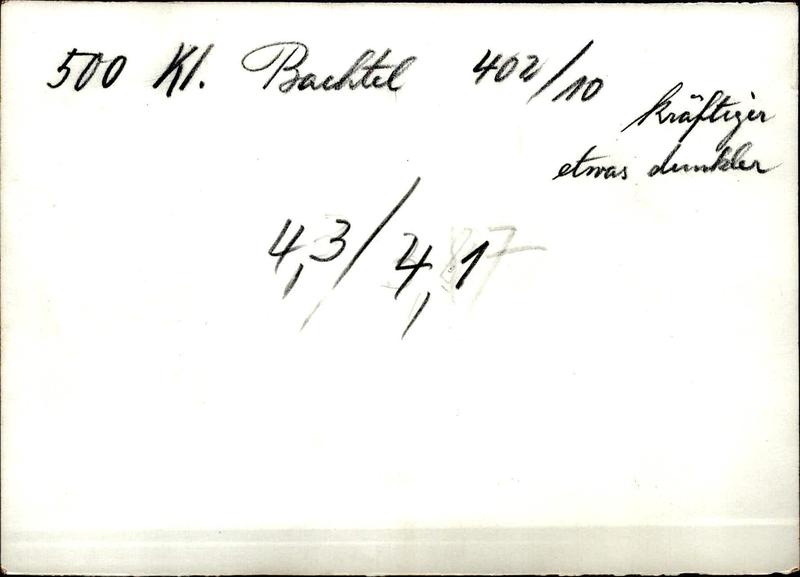 500 Kl. Bachtel 402/10
kräftiger
etwas dunkler
4,3/4,1